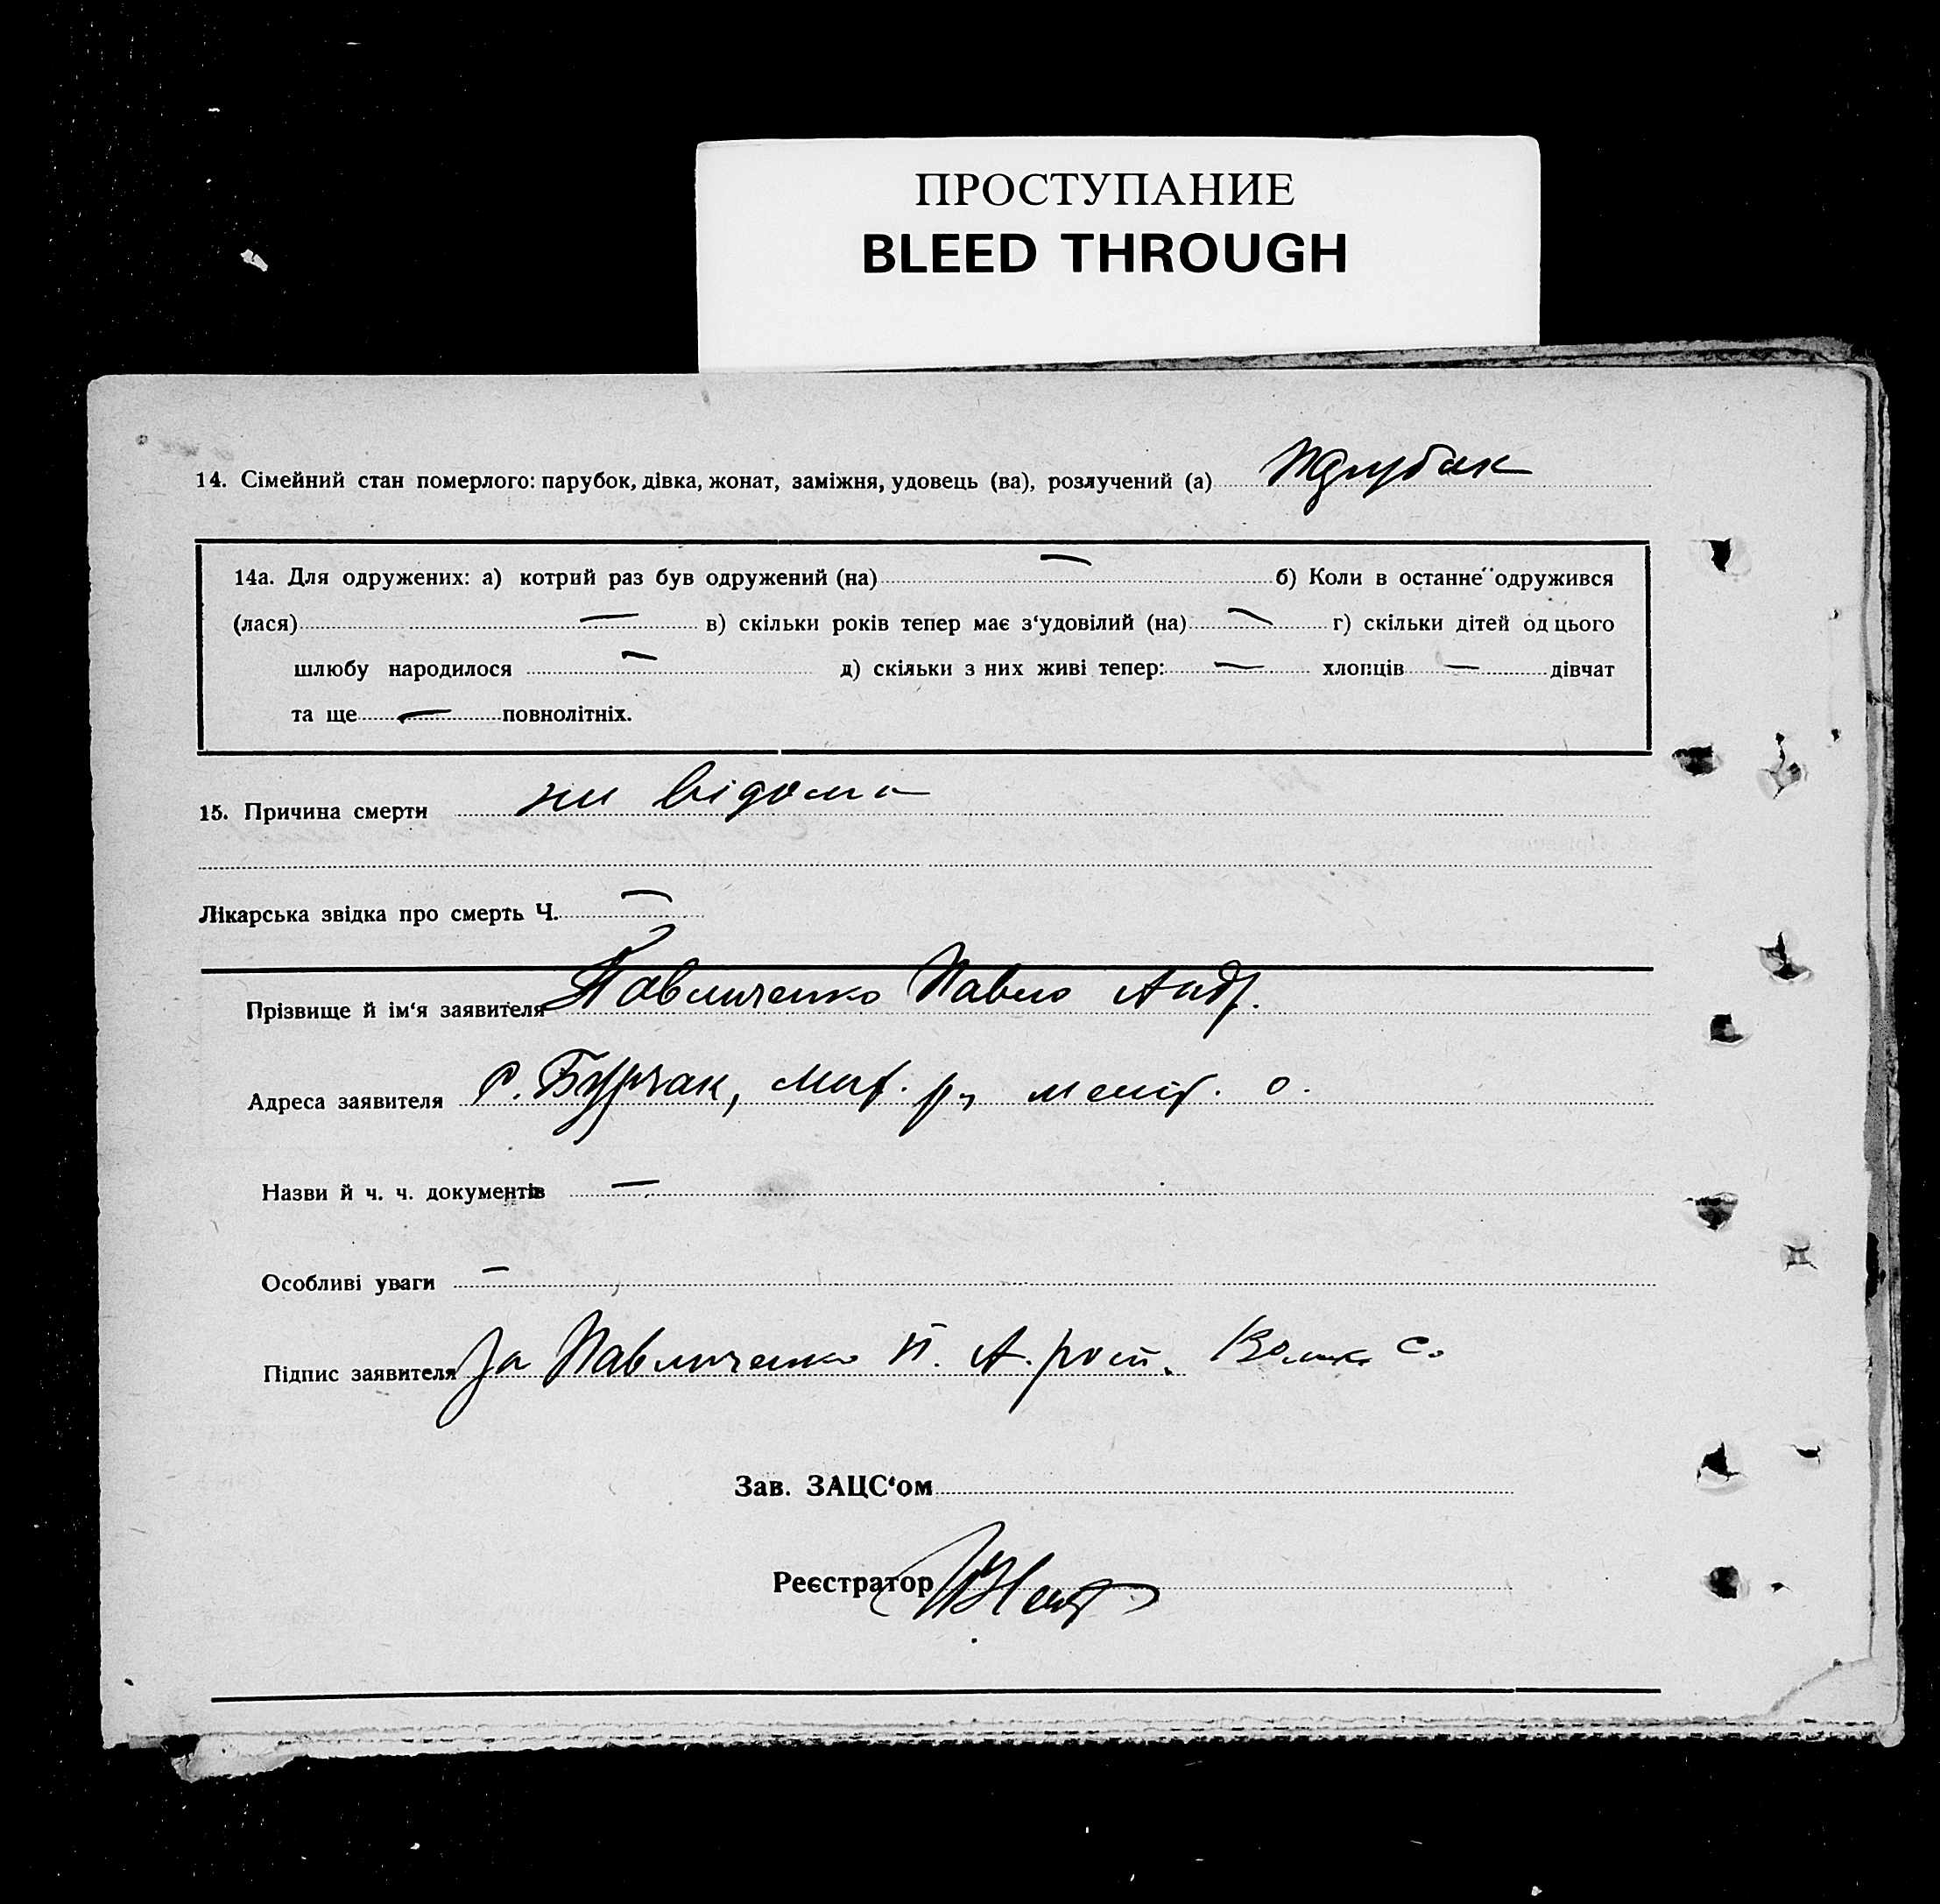 ПРОСТУПАНИЕ
BLEED THROUGH
14. Сімейний стан померлого: парубок, дівка, жонат, заміжня, удовець (ва), розлучений (а) парубак
14а. Для одружених: а) котрий раз був одружений (на) — б) Коли в останнє одружився
(лася) — в) скільки років тепер має з‘удовілий (на) — г) скільки дітей од цього
шлюбу народилося — д) скільки з них живі тепер: — хлопців — дівчат
та ще — повнолітніх.
15. Причина смерти ни відома
Лікарська звідка про смерть Ч. —
Прізвище й ім‘я заявителя Павличенко Павло Андр.
Адреса заявителя с. Бурчак, р.
Назви й ч. ч. документів —
Особливі уваги —
Підпис заявителя За Павличенко П. А. С.
Зав. ЗАЦС‘ом
Реєстратор